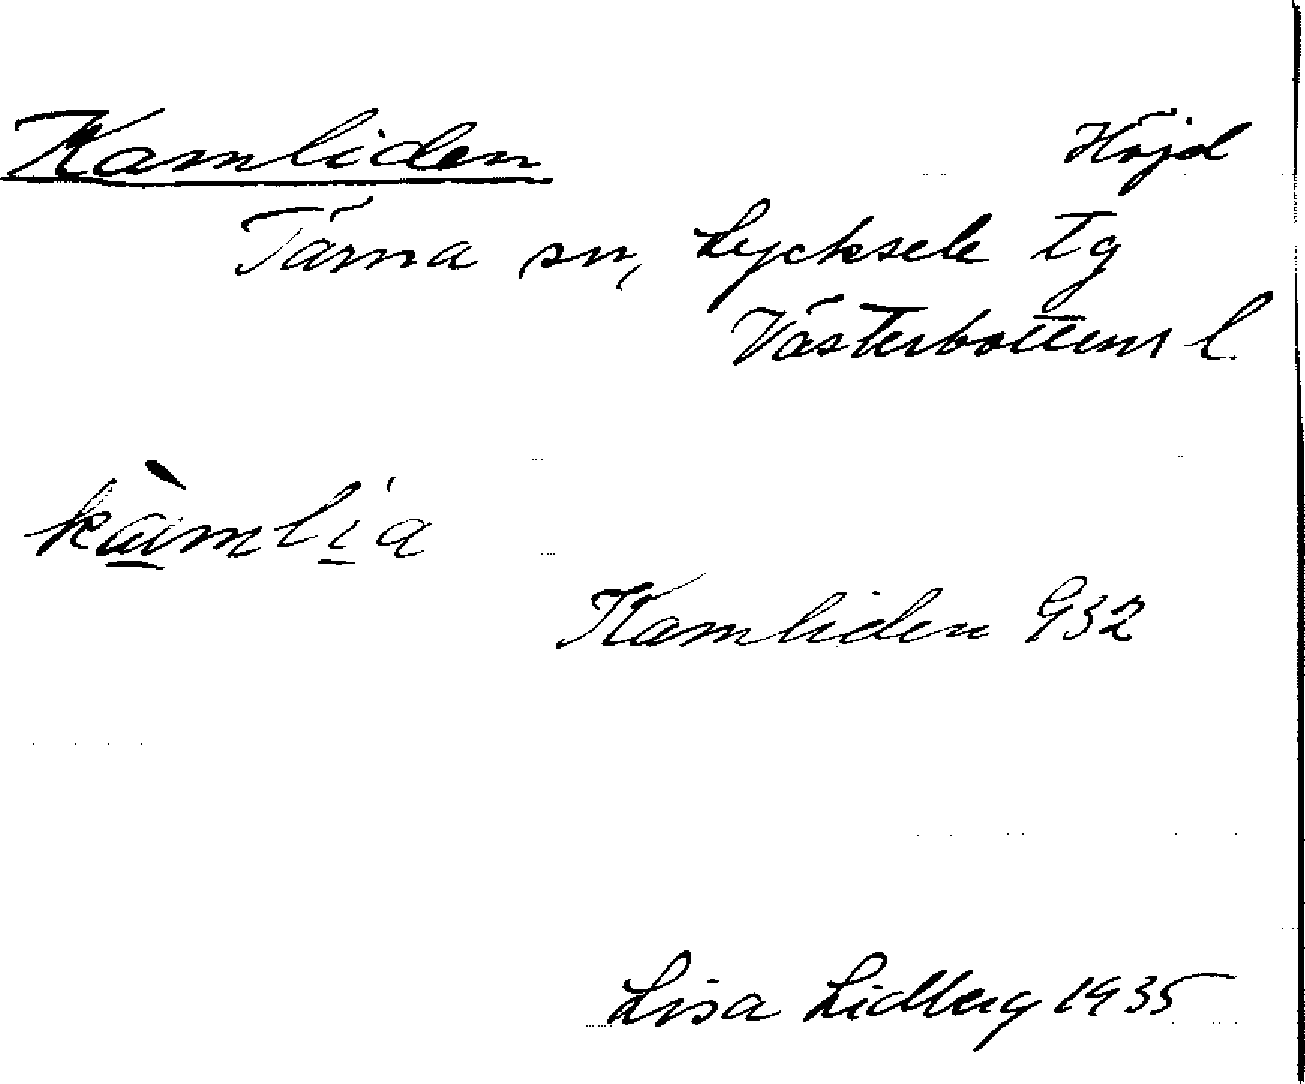 Kamliden Höjd
Tärna sn, Lycksele tg
Västerbottens l.
kàmlía
Kamliden 932
Lisa Lidberg 1935